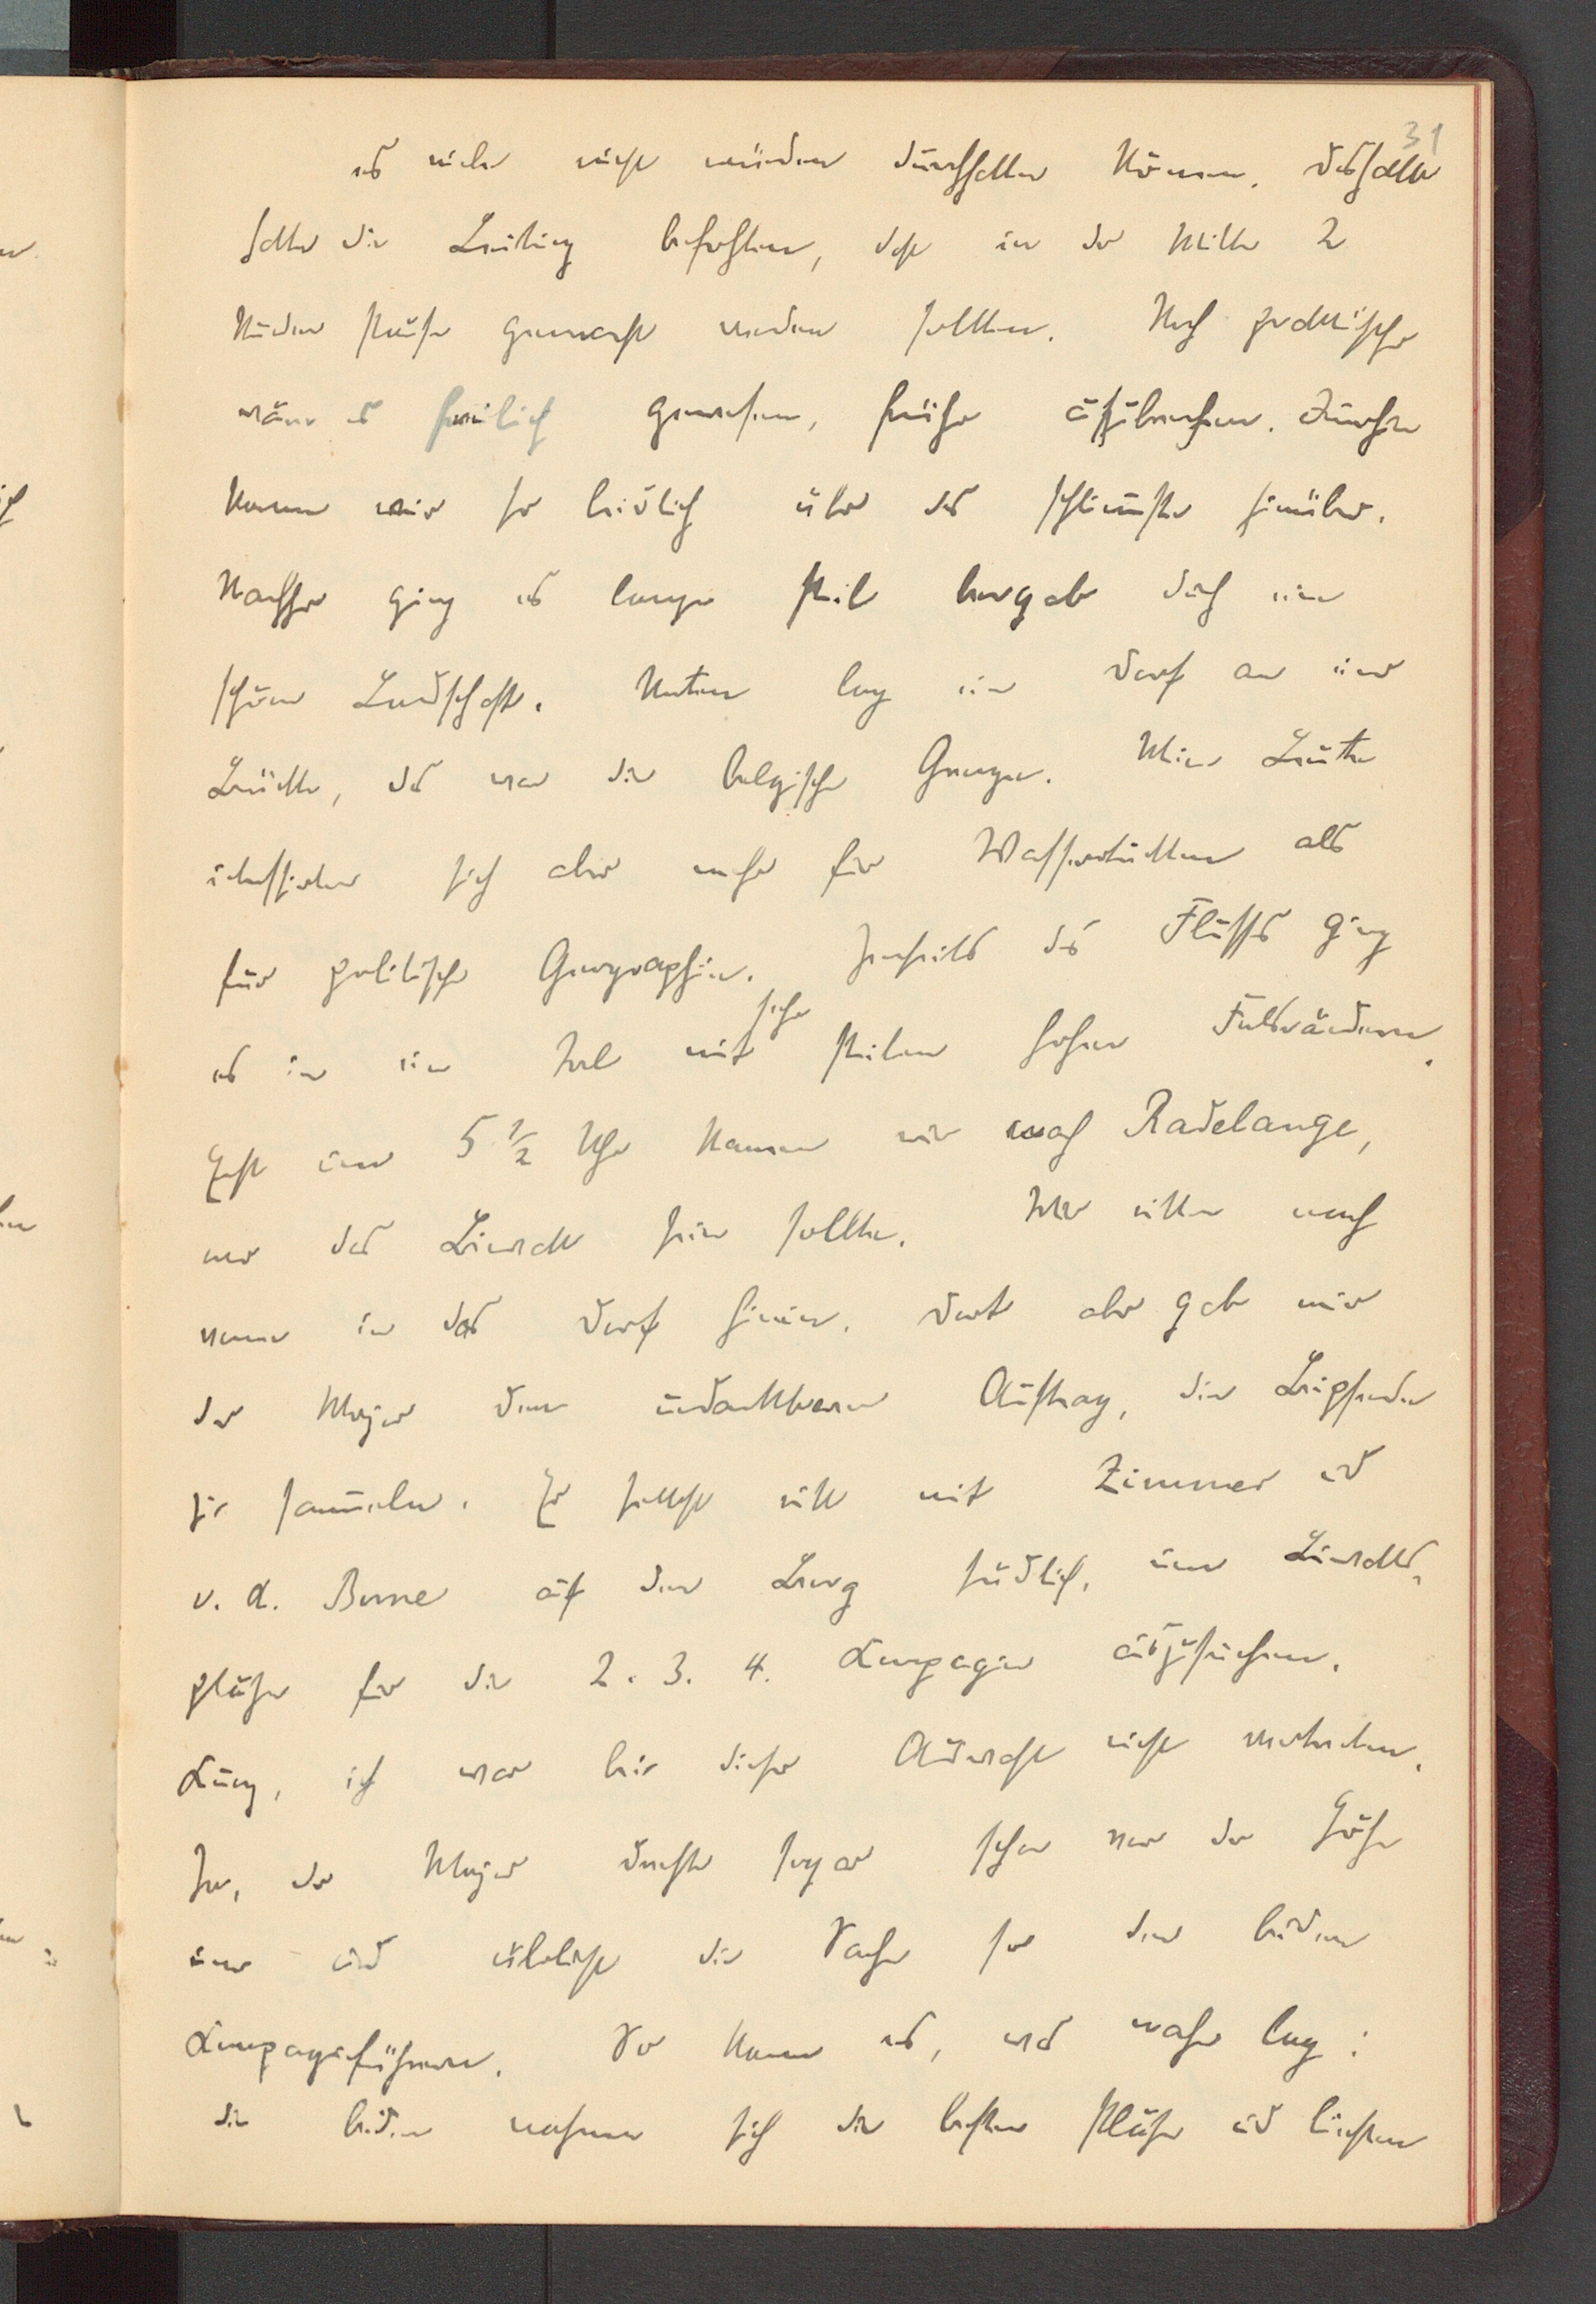 31
es viele nicht würden durchhalten können. Deshalb
hatte die Leitung befohlen, daß in der Mitte 2
Stunden Pause gemacht werden sollten. Noch praktischer
wäre es freilich gewesen, früher aufzubrechen. Immerhin
kamen wir so leidlich über das Schlimmste hinüber.
Nachher ging es lange steil bergab durch eine
schöne Landschaft. Unten lag ein Dorf an einer
Brücke, das war die belgische Grenze. Meine Leute
interessierten sich aber mehr für Wassertrinken als
für politische Geographie. Jenseits des Flusses ging
es in ein Tal mit sehr steilen hohen Felswänden.
Erst um 5 1/2 Uhr kamen wir nach Radelange,
wo das Biwack sein sollte. Wir ritten nach
vorne in das Dorf hinein. Dort aber gab mir
der Major den undankbaren Auftrag, die Leipferde
zu sammeln. Er selbst ritt mit Zimmer und
v. d. Borne auf den Berg südlich, um Biwacks-
plätze für die 2. 3. 4. Kompagnie auszusuchen.
Kurz, ich war bei dieser Auswahl nicht vertreten.
Ja, der Major drehte sogar schon vor der Höhe
um und überließ die Sache so den beiden
Kompagnieführern. So kam es, was nahe lag:
die beiden nahmen sich die besten Plätze und ließen